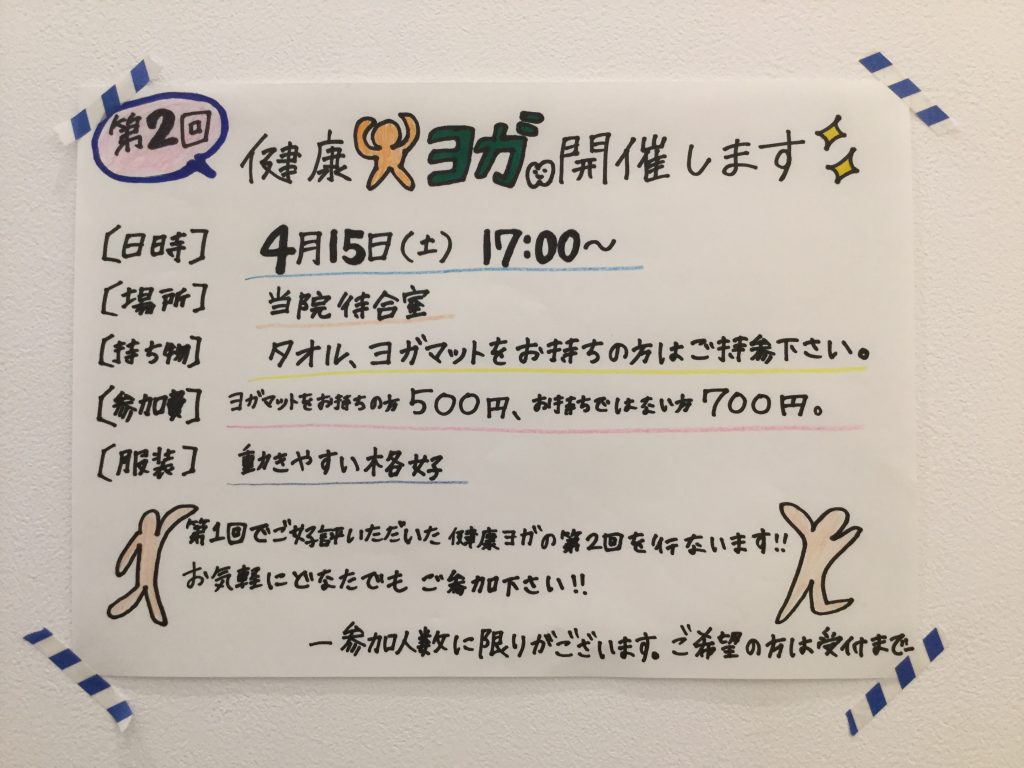 第2回
健康ヨガの開催します
[日時] 4月15日(土) 17:00〜
[場所] 当院待合室
[持ち物] タオル、ヨガマットをお持ちの方はご持参下さい。
[参加費] ヨガマットをお持ちの方500円、お持ちではない方700円。
[服装] 動きやすい格好
第1回でご好評いただいた健康ヨガの第2回を行ないます!!
お気軽にどなたでもご参加下さい!!
ー参加人数に限りがございます。ご希望の方は受付までー